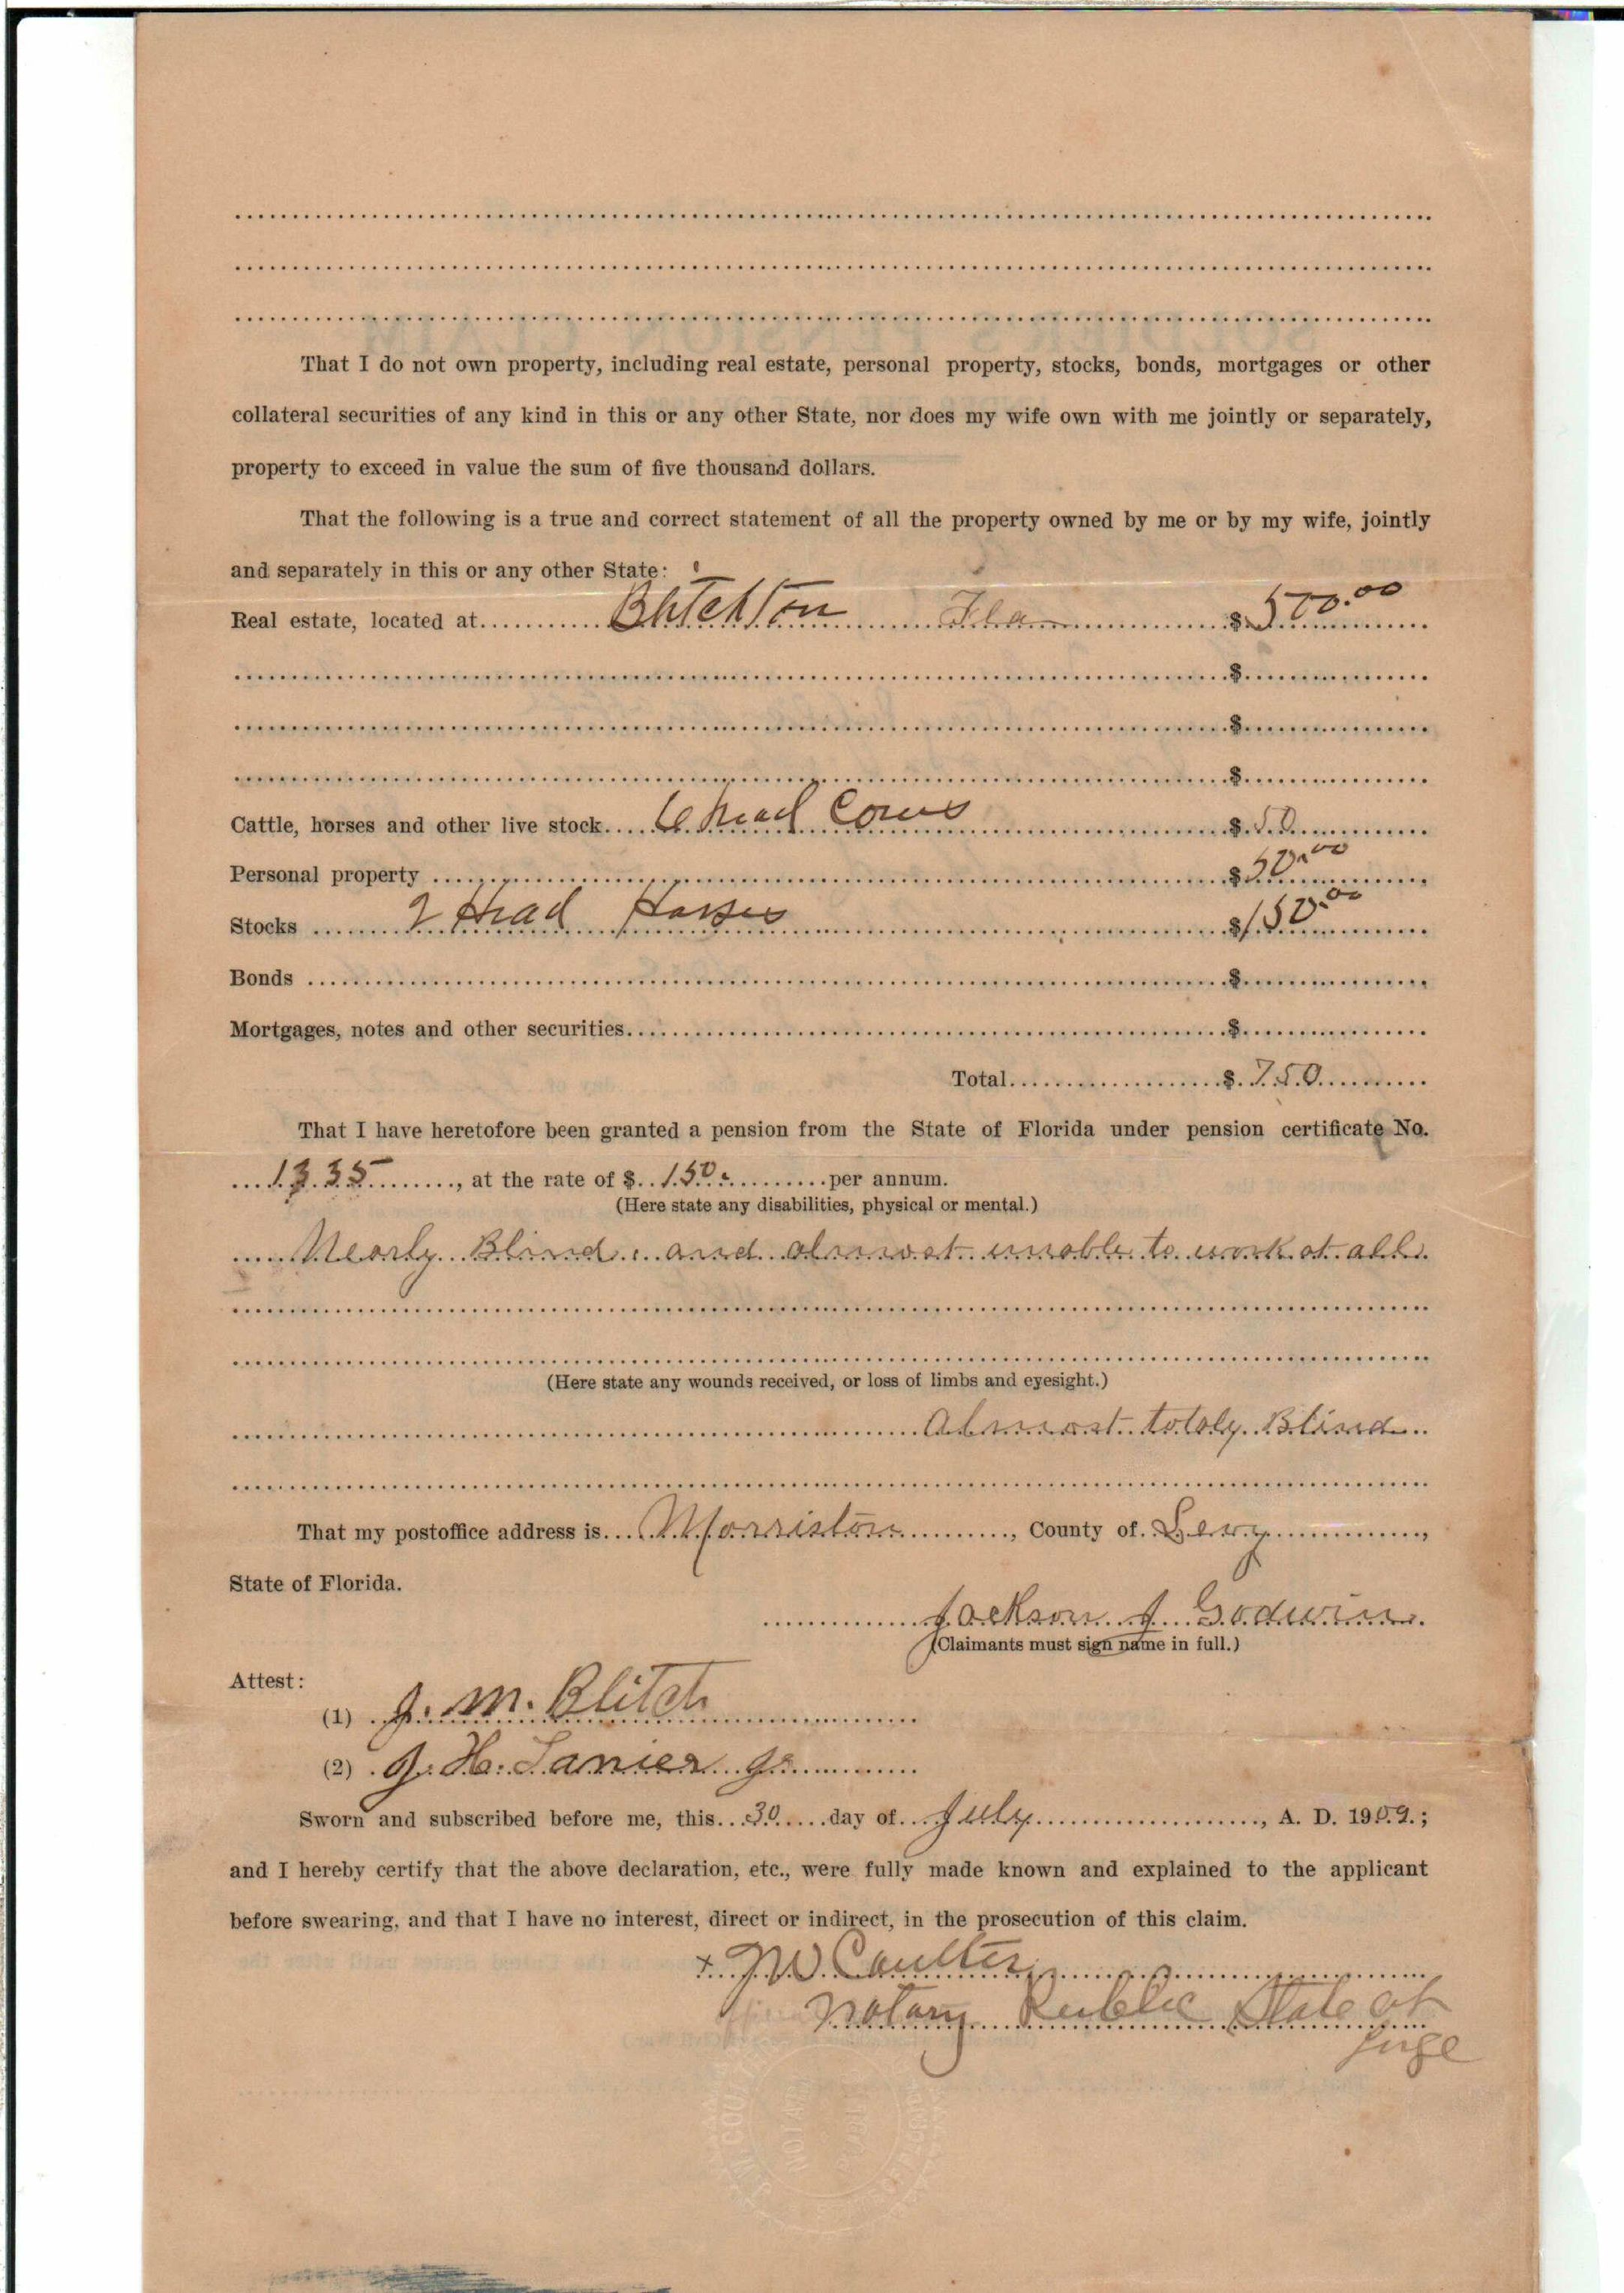 That I do not own property, including real estate, personal property, stocks, bonds, mortgages or other
collateral securities of any kind in this or any other State, nor does my wife own with me jointly or separately,
property to exceed in value the sum of five thousand dollars.
That the following is a true and correct statement of all the property owned by me or by my wife, jointly
and separately in this or any other State:
Real estate, located at Blitchton Fla $ 500.00
$
$
$
Cattle, horses and other live stock 6 head Cows $ 50
Personal property $ 50.00
Stocks 2 Head Horses $ 150.00
Bonds $
Mortgages, notes and other securities $
Total $ 750
That I have heretofore been granted a pension from the State of Florida under pension certificate No.
1335, at the rate of $ 150 per annum.
(Here state any disabilities, physical or mental.)
Nearly Blind and almost unable to work at all
(Here state any wounds received, or loss of limbs and eyesight.)
Almost totaly Blind
That my postoffice address is Morriston, County of Levy,
State of Florida.
Jackson J Godwin
(Claimants must sign name in full.)
Attest:
(1) J. M. Blitch
(2) J. H. Lanier Jr
Sworn and subscribed before me, this 30 day of July, A. D. 1909.;
and I hereby certify that the above declaration, etc., were fully made known and explained to the applicant
before swearing, and that I have no interest, direct or indirect, in the prosecution of this claim.
x J W Coulter
Notary Public State at
Large